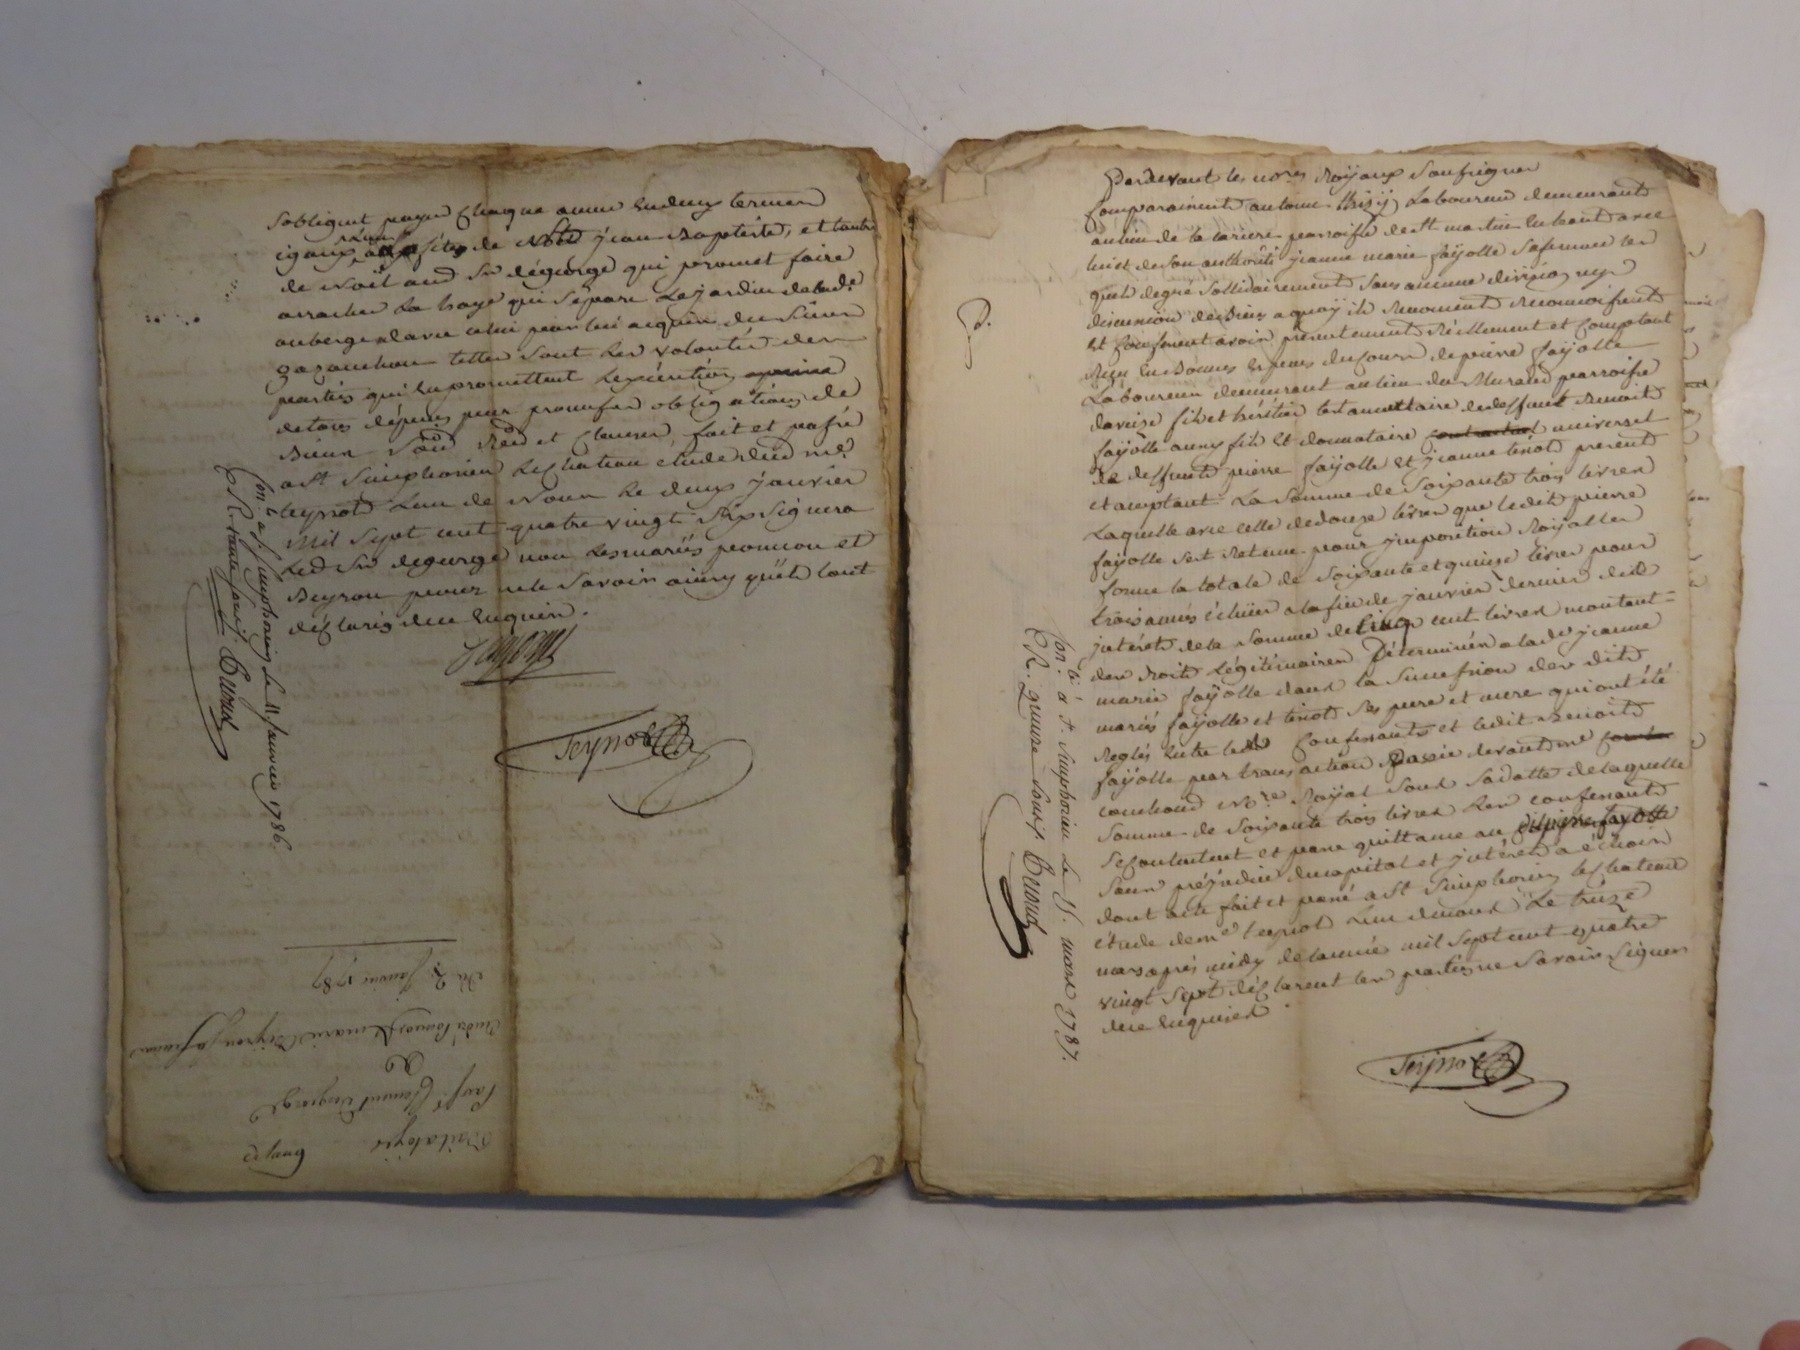 sobligent payer chaque année en deux termes
egaux, de Noël jean Baptiste, et l'autre
de Noël aud Sr degeorge qui promet faire
arracher la haye qui separe le jardin de lade
auberge davec celui par lui acquis du Sieur
telles sont les volontés des
parties qui en promettent lexécution
de tous dépens par promesses obligations de
Biens Soûd Rend et Clauses, fait et passé
a St Simphorien le chateau etude dud me
teynot lun de Nous le deux janvier
mil sept cent quatre vingt sept Signera
led Sr degeorge non les mariés ponson et
Beyron pour ne le savoir ainsy quils l'ont
déclaré de ce enquis.
Teynot
Con.lé a St. Simphorien le 11 janvier 1786.
R. sauf Cuoud
Du 2 janvier 1787
marie Beyron sa femme
Clement Degeorge
Bail a loyer
Pardevant les nores Royaux Soussignés
Comparaissent antoine Laboureur demeurant
au lieu de la paroisse de St martin en haut avec
lui et de son authorité jeanne marie fayolle sa femme les
quels degré sollidairement sans aucune division ny
discussion de Biens a quoy ils Renoncent Reconnoissent
et Confessent avoir présentement Réellement et Comptant
Reçu en Bonnes espèces du Cours de pierre fayolle
Laboureur demeurant au lieu du Muraud parroisse
daveize fils et héritier testamentaire de deffunt Benoit
fayolle aussy fils et donnataire universel
de deffunts pierre fayolle et jeanne tinot présent
et acceptant La somme de soixante trois livres
Laquelle avec celle de douze livres que ledit pierre
fayolle sest Retenue pour jmposition Royalles
forme la totale de soixante et quinze livres pour
trois années échües a la fin de janvier dernier des
jntérêts de la somme de Cinq cent livres montant
des droits Légitimaires Déterminés a lade jeanne
marie fayolle dans la Succession des dits
mariés fayolle et tinot ses pere et mere qui ont été
Réglés entre les Confessants et ledit Benoit
fayolle par transaction passée devant me
Nore Royal sous sa datte de laquelle
somme de soixante trois livres les confessants
se contentent et passe quittance au d pierre fayolle
sans préjudice du capital et jntérêts a échoir
dont acte fait et passé a St Simphorien le chateau
étude de me teynot lun de nous Le treize
mars après midy de lannée mil sept cent quatre
vingt sept déclarent les parties ne savoir signer
de ce enquises.
Teynot
Con.lé a St. Simphorien Le 15. mars 1787.
R. quinze sous Cuoud